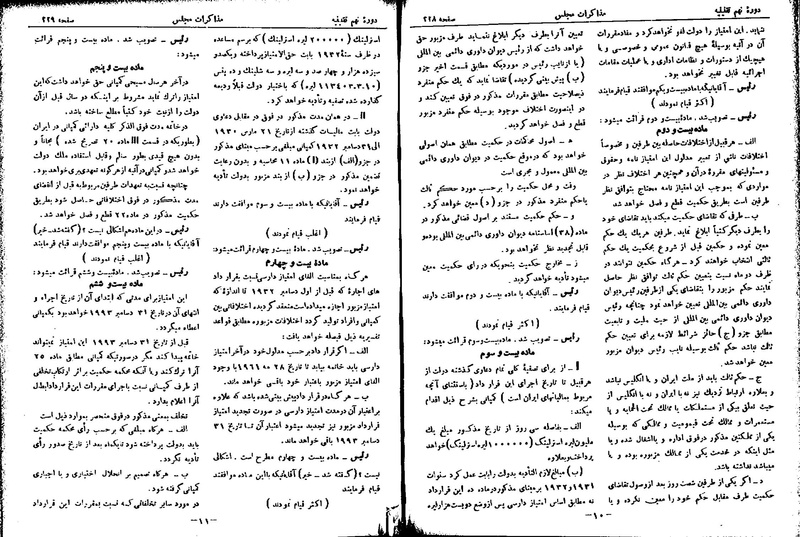 صفحه ۲۲۸ مذاکرات مجلس دوره نهم تقنینیه
نماید، این امتیاز را دولت لغو نخواهد کرد و مفاد مقررات
آن در آتیه بوسیله هیچ قانون عمومی و خصوصی و یا
هیچیک از دستورات و نظامات اداری و یا عملیات مقامات
اجرائیه قابل تغییر نخواهد بود.
رئیس ـ آقایانیکه با ماده بیست و یکم موافقند قیام فرمایند
(اکثر قیام نمودند)
رئیس ـ تصویب شد. ماده بیست و دوم قرائت میشود:
ماده بیست و دوم
الف ـ هر قبیل از اختلافات حاصله بین طرفین و مخصوصاً
اختلافات ناشی از تعبیر مدلول این امتیاز نامه و حقوق
و مسئولیتهای مقرره در آن و همچنین هر اختلاف نظر در
مواردی که بموجب این امتیاز نامه محتاج بتوافق نظر
طرفین است بطریق حکمیت قطع و فصل خواهد شد.
ب ـ طرفی که تقاضای حکمیت میکند باید تقاضای خود
را بطرف دیگر کتباً ابلاغ نماید. طرفین هر یک یک حکم
معین نموده و حکمین قبل از شروع بحکمیت یک حکم
ثالثی انتخاب خواهند کرد ـ هرگاه حکمین نتوانند در
ظرف دو ماه نسبت بتعیین حکم ثالث توافق نظر حاصل
نمایند حکم مزبور را بتقاضای یکی از طرفین رئیس دیوان
داوری دائمی بین‌المللی تعیین خواهد نمود چنانچه رئیس
دیوان داوری دائمی بین‌المللی از حیث ملیت و تابعیت
مطابق جزو (ج) حائز شرائط لازمه برای تعیین حکم
ثالث نباشد حکم ثالث بوسیله نایب رئیس دیوان مزبور
معین خواهد شد.
ج ـ حکم ثالث باید از ملت ایران و یا انگلیس نباشد
و بعلاوه ارتباط نزدیک نیز نه با ایران و نه با انگلیس از
حیث تعلق بیکی از مستملکات یا ممالک تحت‌الحمایه و یا
مستعمرات و ممالک تحت قیمومیت و ممالکی که بوسیله
یکی از مملکتین مذکور در فوق اداره و یا اشغال شده و یا
مثل اینکه در خدمت یکی از ممالک مزبوره بوده و یا
میباشد نداشته باشد.
د ـ اگر یکی از طرفین شصت روز بعد از وصول تقاضای
حکمیت طرف مقابل حکم خود را معین نکرده و یا
تعیین آنرا بطرف دیگر ابلاغ ننماید طرف مزبور حق
خواهد داشت که از رئیس دیوان داوری دائمی بین‌المللی
(یا از نایب رئیس در موردیکه مطابق قسمت اخیر جزو
(ب) پیش بینی گردیده) تقاضا نماید که یک حکم منفرد
ذیصلاحیت مطابق مقررات مذکور در فوق تعیین کند و
در اینصورت اختلاف موجود بوسیله حکم منفرد مزبور
قطع و فصل خواهد گردید.
ه ـ اصول محاکمات در حکمیت مطابق همان اصولی
خواهد بود که در موقع حکمیت در دیوان داوری دائمی
بین‌المللی معمول و مجری است
وقت و محل حکمیت را برحسب مورد حکم ثالث
یا حکم منفرد مذکور در جزو (د) معین خواهد کرد.
و ـ حکم حکمیت مستند بر اصول قضائی مذکور در
ماده (۳۸) اساسنامه دیوان داوری دائمی بین‌المللی بوده و
قابل تجدید نظر نخواهد بود.
ز ـ مخارج حکمیت بنحویکه در رای حکمیت معین
میشود تأدیه خواهد گردید.
رئیس ـ آقایانیکه با ماده بیست و دوم موافقت دارند
قیام فرمایند.
(اکثر قیام نمودند)
رئیس ـ تصویب شد. ماده بیست و سوم قرائت میشود:
ماده بیست و سوم
I ـ از برای تصفیه کلی تمام دعاوی گذشته دولت از
هر قبیل تا تاریخ اجرای این قرار داد (باستثنای آنچه
مربوط بمالیاتهای ایران است) کمپانی بشرح ذیل اقدام
میکند:
الف ـ بفاصله سی روز از تاریخ مذکور مبلغ یک
ملیون لیره استرلینگ (۱۰۰۰۰۰۰ لیره استرلینگ) خواهد
پرداخت و بعلاوه
(ب) مبالغ لازم التأدیه بدولت را بابت عمل کرد سنوات
۱۹۳۱ و ۱۹۳۲ بر مبنای مذکور در ماده ده این قرارداد
نه مطابق اساس امتیاز دارسی پس از وضع دویست هزار لیره
ـ ۱۰ ـ
دوره نهم تقنینیه مذاکرات مجلس صفحه ۲۲۹
استرلینگ (۲۰۰۰۰۰ لیره استرلینگ) که برسم مساعده
در ظرف سنه ۱۹۳۲ بابت حق‌الامتیاز پرداخته و یکصد و
سیزده هزار و چهار صد و سه لیره و سه شلینگ و ده پنس
(۱۱۳۴۰۳.۳.۱۰ لیره) که باختیار دولت قبلاً ودیعه
گذارده شده تصفیه و تأدیه خواهد کرد.
II ـ در همان مدت مذکور در فوق در مقابل دعاوی
دولت بابت مالیات گذشته از تاریخ ۲۱ مارس ۱۹۳۰
الی ۳۱ دسامبر ۱۹۳۲ کمپانی مبلغی بر حسب مبنای مذکور
در جزو (الف) از بند (I) ماده ۱۱ محاسبه و بدون رعایت
تضمین مذکور در جزو (ب) از بند مزبور بدولت تأدیه
خواهد نمود.
رئیس ـ آقایانیکه با ماده و سوم موافقت دارند
قیام فرمایند
(اغلب قیام نمودند)
رئیس ـ تصویب شد. ماده بیست و چهارم قرائت میشود:
ماده بیست و چهارم
هرگاه بمناسبت الغای امتیاز دارسی نسبت بقرار داد
های اجاره که قبل از اول دسامبر ۱۹۳۲ تا اندازه که
امتیاز مزبور اجازه میداد است منعقد گردیده اختلافاتی بین
کمپانی و افراد تولید گردد اختلافات مزبوره مطابق قواعد
تفسیریه ذیل فیصله خواهد یافت:
الف ـ اگر قرار داد برحسب مدلول خود در آخر امتیاز
دارسی باید خاتمه بیابد تا تاریخ ۲۸ مه ۱۹۶۱ با وجود
الغای امتیاز مزبور باعتبار خود باقی خواهد ماند.
ب ـ هرگاه در قرار داد پیش بینی شده باشد که علاوه
بر اعتبار آن در مدت امتیاز دارسی در صورت تجدید امتیاز
قرارداد مزبور نیز تجدید میشود اعتبار آن تا تاریخ ۳۱
دسامبر ۱۹۹۳ باقی خواهد ماند.
رئیس ـ ماده بیست و چهارم مطرح است. اشکالی
نیست؟ (گفته شد ـ خیر) آقایانیکه با این ماده موافقند
قیام فرمایند
(اکثر قیام نمودند)
رئیس ـ تصویب شد. ماده بیست و پنجم قرائت
میشود:
ماده بیست و پنجم
در آخر هر سال مسیحی کمپانی حق خواهد داشت که این
امتیاز را ترک نماید مشروط بر اینکه دو سال قبل از آن
دولت را از نیت خود کتباً مطلع ساخته باشد.
در خاتمه مدت فوق الذکر کلیه دارائی کمپانی در ایران
(بطوریکه در قسمت III ماده ۲۰ تصریح شده) مجاناً و
بدون هیچ قیدی بطور سالم و قابل استفاده ملک دولت
خواهد شد و کمپانی در آتیه از هر گونه تعهدی بری خواهد بود.
چنانچه نسبت به تعهدات طرفین مربوط به قبل از انقضای
مدت مذکور در فوق اختلافاتی حاصل شود بطریق
حکمیت مذکور در ماده ۲۲ قطع و فصل خواهد شد.
رئیس ـ در این ماده هم اشکالی نیست؟ (گفته شد ـ خیر)
آقایانیکه با ماده بیست و پنجم موافقت دارند قیام فرمایند
(اغلب قیام نمودند)
رئیس ـ تصویب شد. ماده بیست و ششم قرائت میشود:
ماده بیست و ششم
این امتیاز برای مدتی که ابتدای آن از تاریخ اجراء و
انتهای آن در تاریخ ۳۱ دسامبر ۱۹۹۳ خواهد بود بکمپانی
اعطاء میگردد.
قبل از تاریخ ۳۱ دسامبر ۱۹۹۳ این امتیاز نمیتواند
خاتمه پیدا کند مگر در صورتیکه کمپانی مطابق ماده ۲۵
آنرا ترک کند و یا آنکه محکمه حکمیت بر اثر ارتکاب تخلفی
از طرف کمپانی نسبت باجرای مقررات این قرارداد ابطال
آنرا اعلام بدارد.
تخلف بمعنی مذکور در فوق منحصر بموارد ذیل است
الف ـ هرگاه مبلغی که برحسب رأی محکمه حکمیت
باید بدولت پرداخته شود تا یکماه بعد از تاریخ صدور رأی
تأدیه نگردد.
ب ـ هرگاه تصمیم بر انحلال اختیاری و یا اجباری
کمپانی گرفته شود.
در مورد سایر تخلفاتی که نسبت بمقررات این قرارداد
ـ ۱۱ ـ